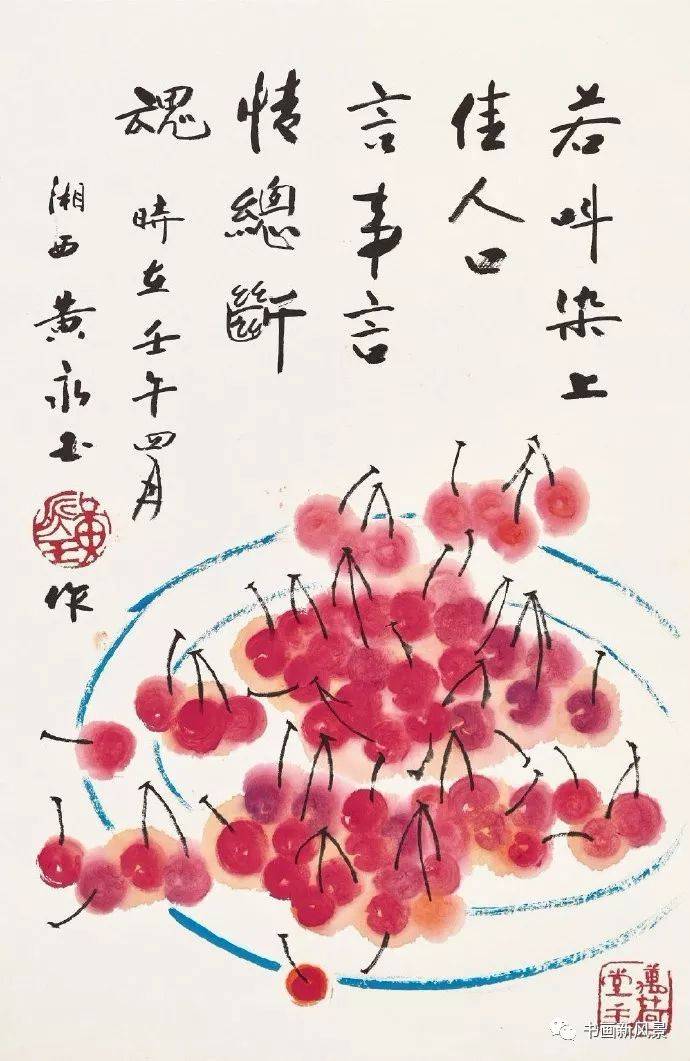 若叫染上
佳人口
言事言
情總斷
魂
時在壬午四月
湘西黄永玉
黃永玉
作
萬荷堂主
书画新风景